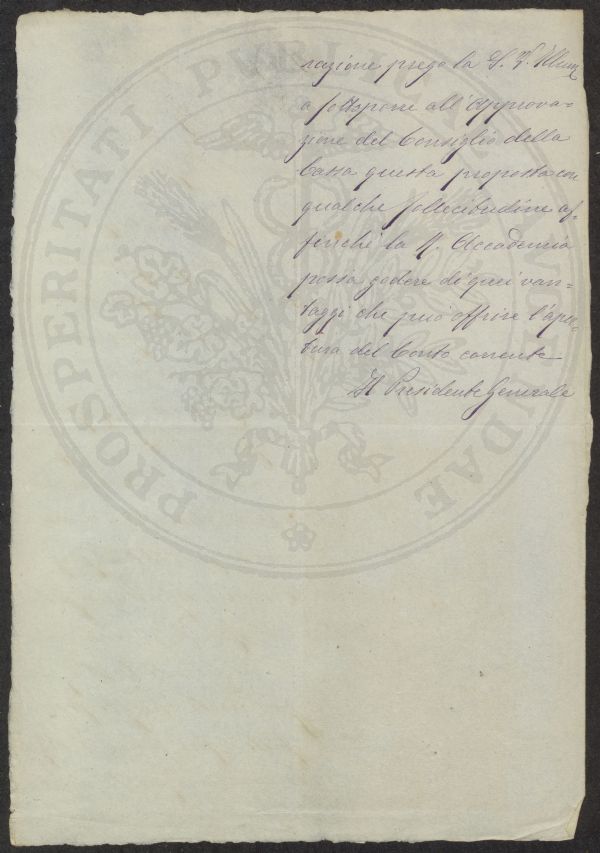 razione prego la S. V. Illma
a sottoporre all'approva-
zione del Consiglio della
Cassa questa proposta con
qualche sollecitudine af-
finchè la R. Accademia
possa godere di quei van-
taggi che può offrire l'aper-
tura del Conto corrente
Il Presidente Generale
PROSPERITATI PVBLICAE AVGENDAE